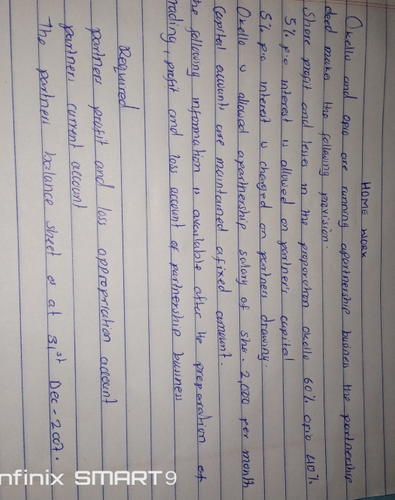 HOME WORK
Okello and opio are running apartnership business the partnership
deed makes the following provision.
Share profit and losses in the preparation Okello 60% opio 40%.
5% p.a interest is allowed on partner's capital
5% p.a interest is charged on partners drawing
Okello is allowed apartnership salary of shs. 2,000 per month
Capital account are maintained afixed amount.
the following information is available after the preparation of
rading, profit and loss account of partnership business
Required
partners profit and loss appropriation account
partners current account
The partners balance sheet as at 31st Dec - 2007.
nfinix SMART 9